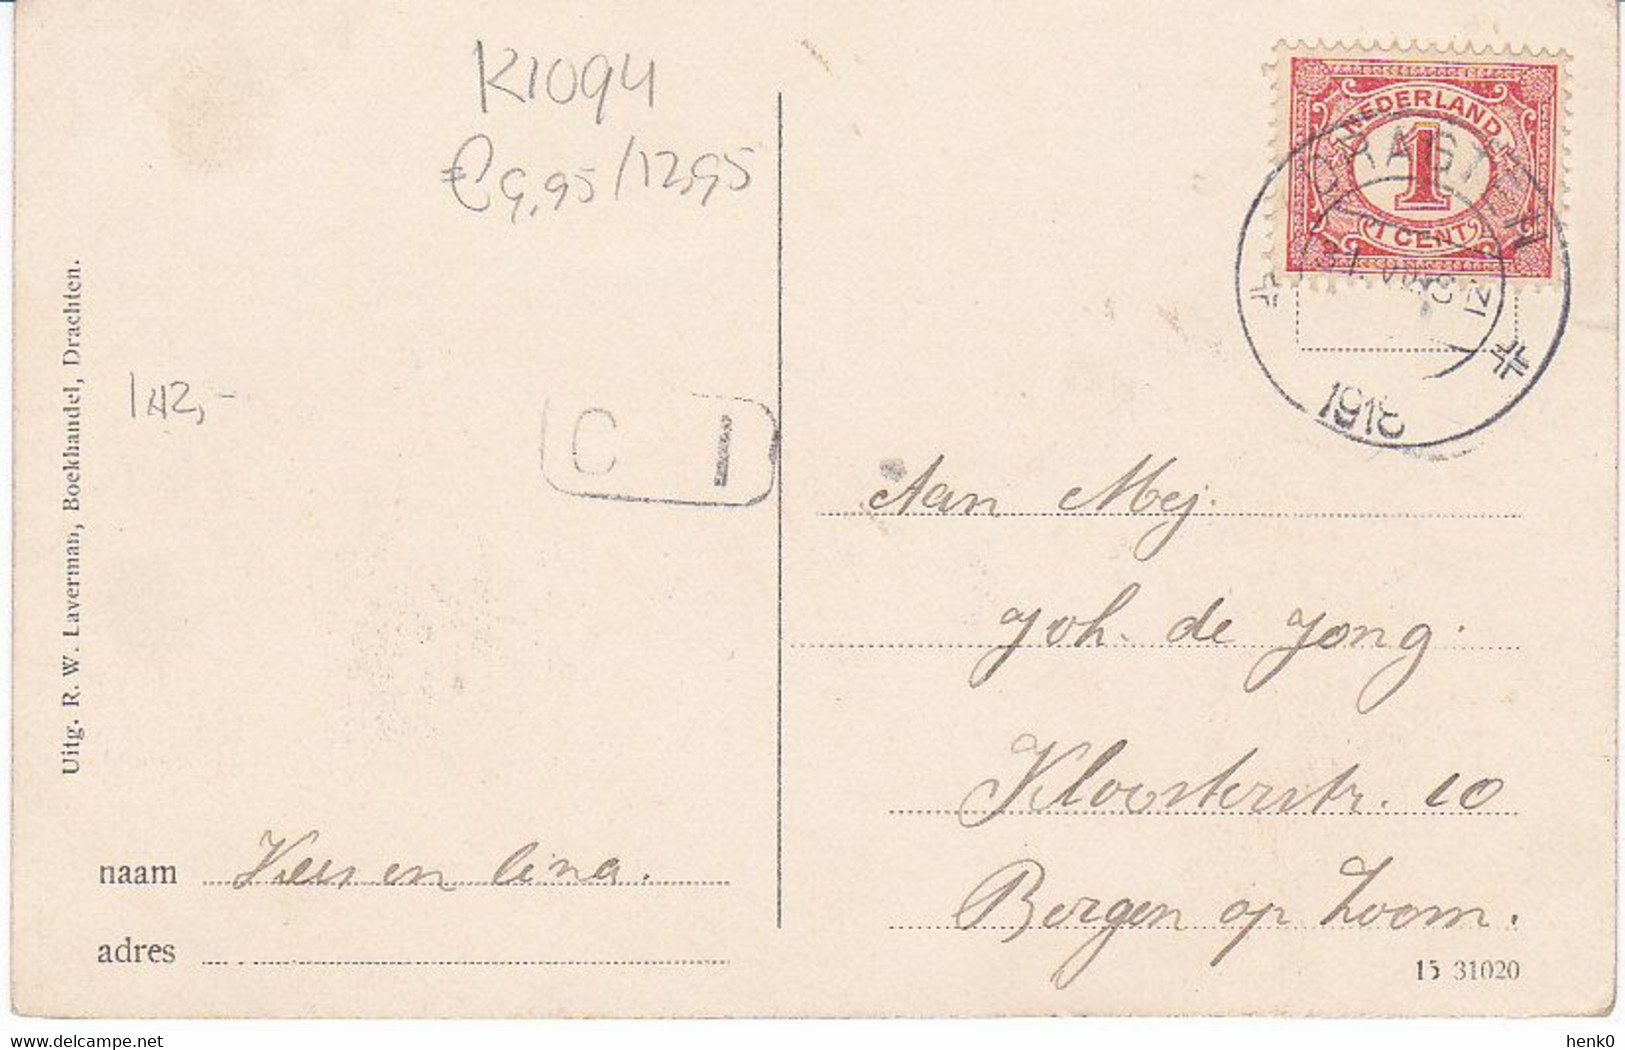 K1094
€ 9,95/12,95
NEDERLAND
1
1 CENT
1918
Uitg. R. W. Laverman, Boekhandel, Drachten.
142,-
C I
Aan Mej.
Joh. de Jong.
Kloosterstr. 10
Bergen op Zoom.
naam Kees en Lina.
adres
15 31020
delcampe.net
henk0